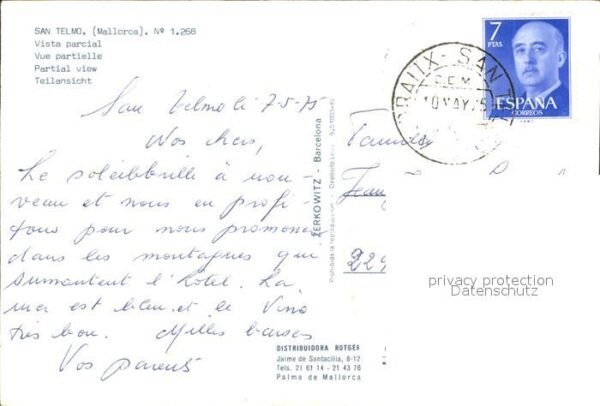 SAN TELMO, (Mallorca). Nº 1.268
Vista parcial
Vue partielle
Partial view
Teilansicht
San Telmo le 7-5-75
Nos chers,
Le soleil brille à nou-
veau et nous en profi-
tons pour nous promener
dans les montagnes qui
surmontent l'hôtel. La
mer est bleue et le vino
très bon. Milles baisers
Vos parents
ZERKOWITZ - Barcelona
Prohibida la reproducción - Depósito Legal
DISTRIBUIDORA ROTGER
Jaime de Santacilia, 8-12
Tels. 21 61 14 - 21 43 76
Palma de Mallorca
7
PTAS
ESPAÑA
CORREOS
10 MAY 75
Famille
Jean
229
privacy protection
Datenschutz